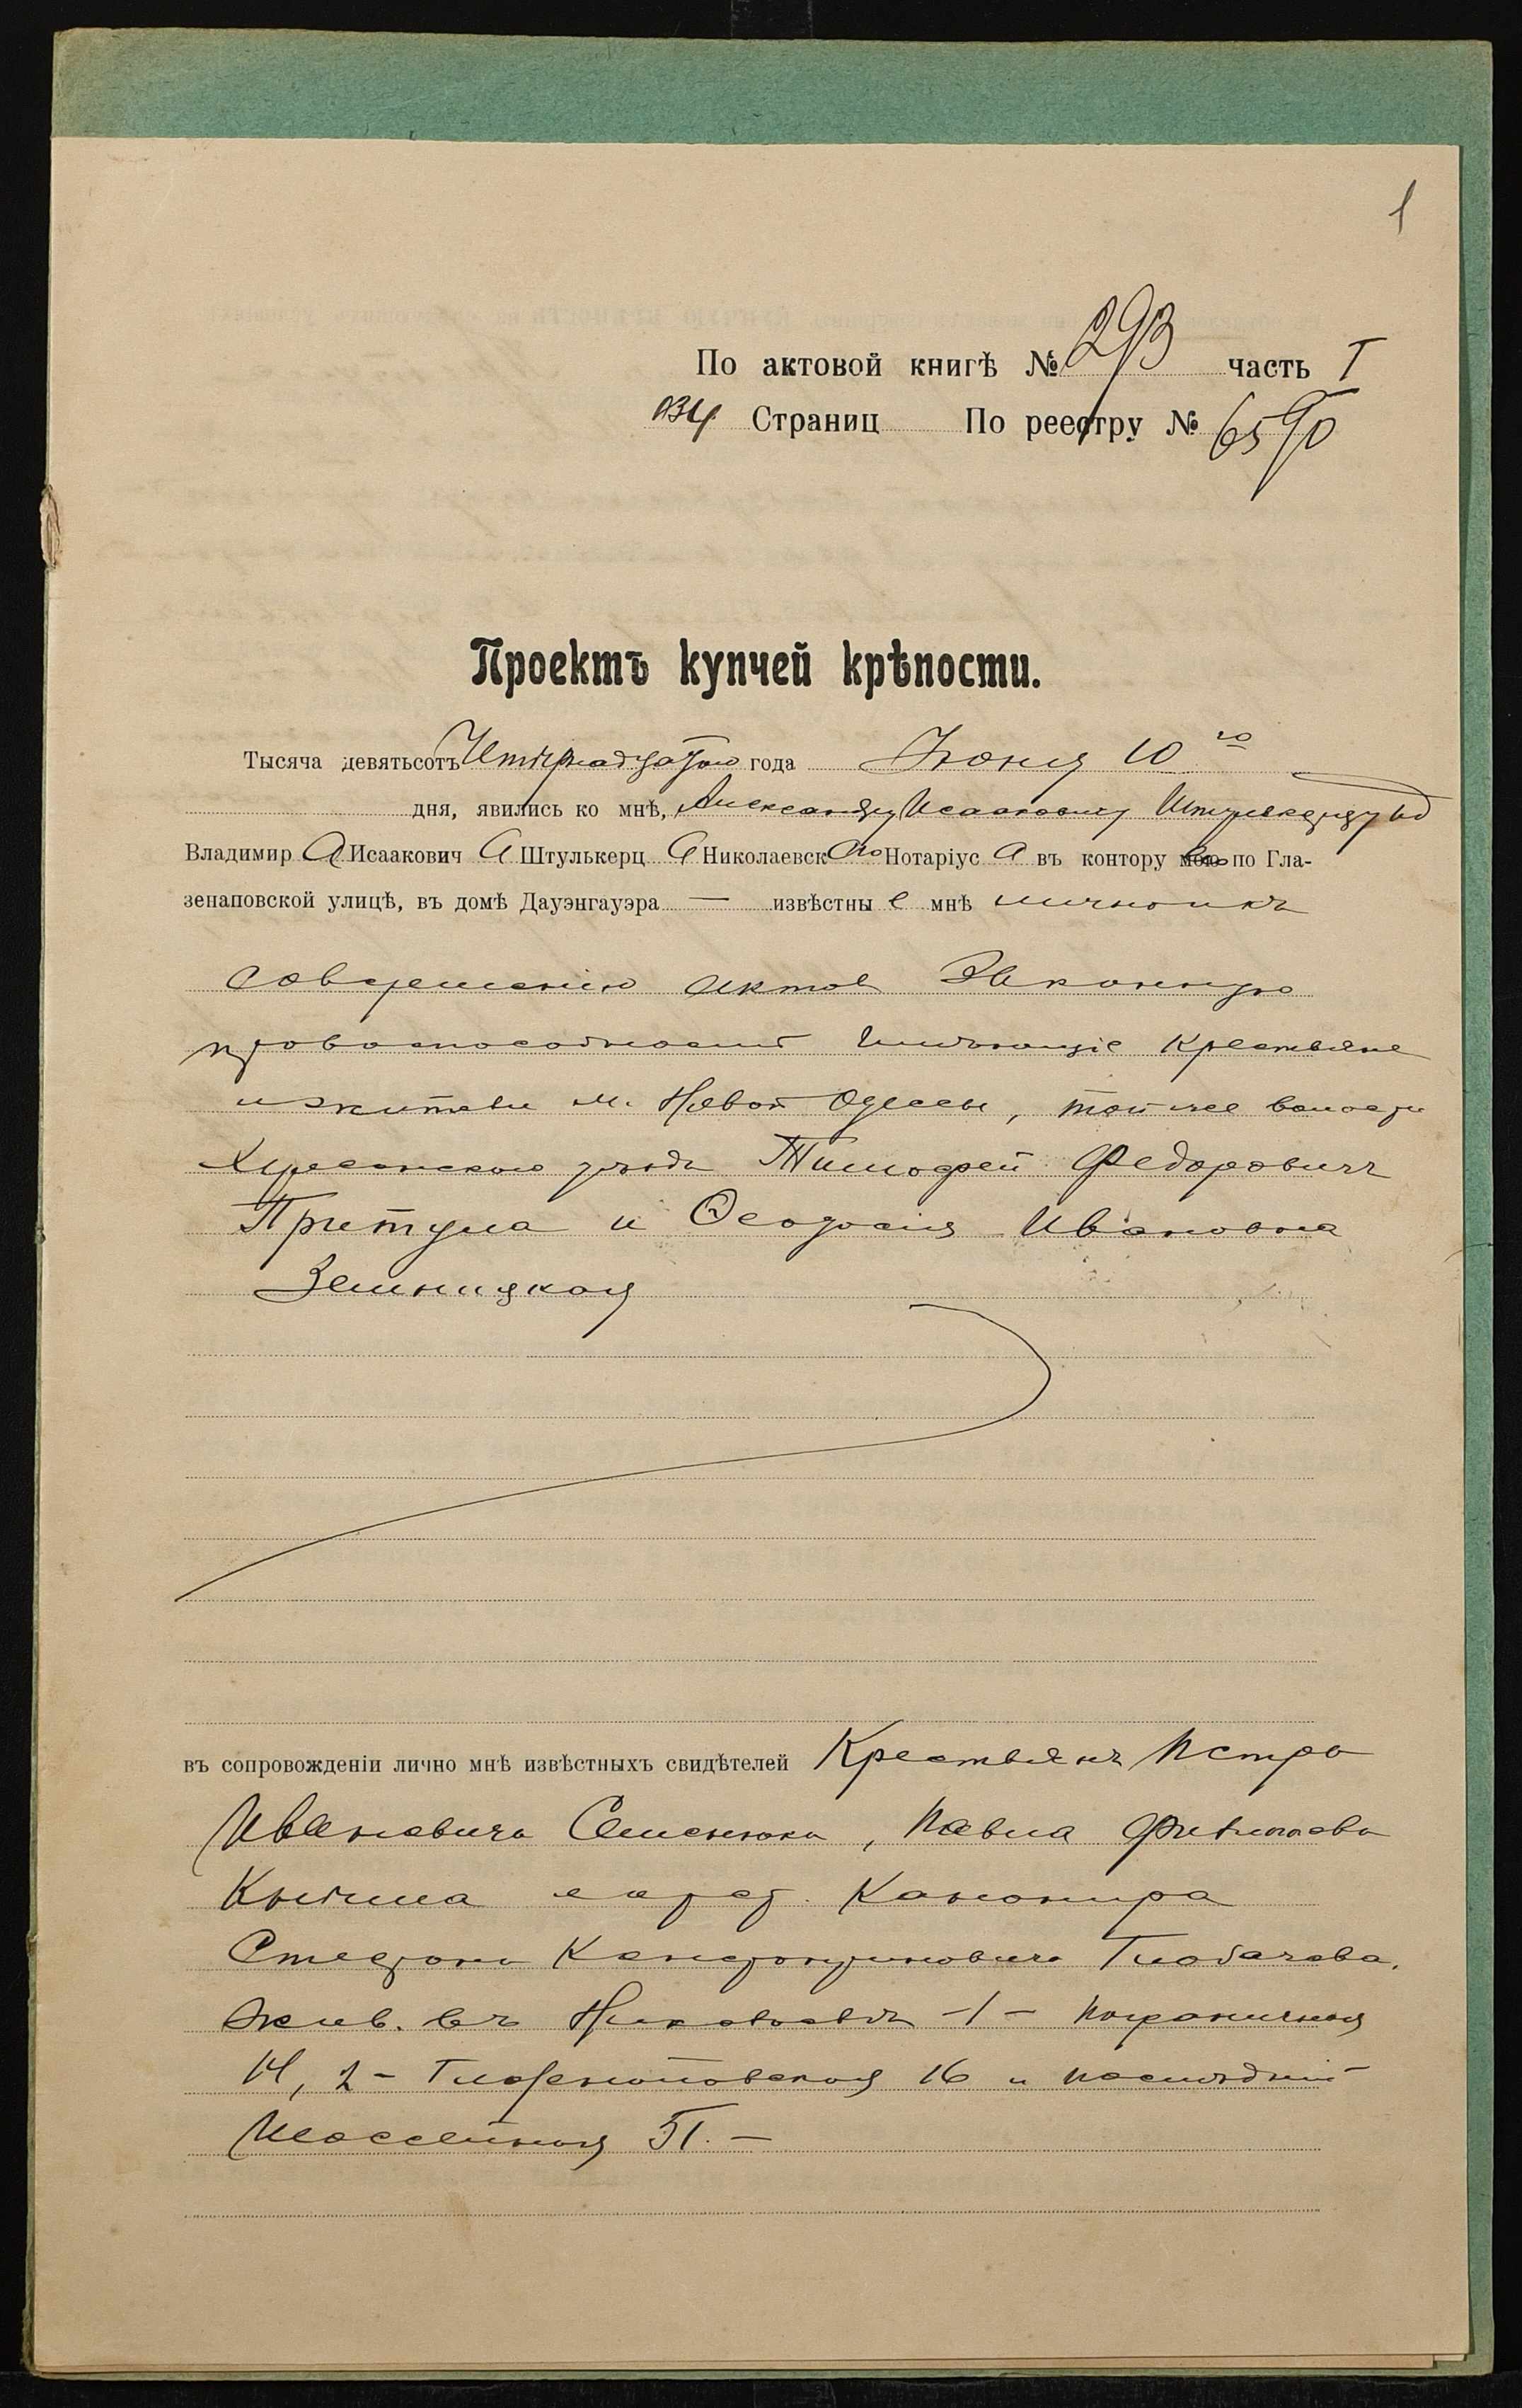 1
По актовой книгѣ № 293 часть I
134 Страниц По реестру № 6590
Проектъ купчей крѣпости.
Тысяча девятьсотъ Четырнадцатаго года Іюня 10 го
дня, явились ко мнѣ, Александру Исааковичу Штулькерцу ИД
Владимир А Исаакович А Штулькерц А Николаевск Аго Нотаріус А въ контору его по Гла-
зенаповской улицѣ, въ домѣ Дауэнгауэра — извѣстны е мнѣ лично и къ
совершенію актов законную
правоспособность имѣющіе крестьяне
и жители м. Новой Одессы, той же волости
Херсонскаго уѣзда Тимофей Федорович
Притула и Ѳеодосія Ивановна
Зелницкая
въ сопровожденіи лично мнѣ извѣстныхъ свидѣтелей Крестьянъ Петра
Ивановича Семенюка, Павла
Стефана Константиновича Глобачева,
жив. въ Николаевѣ -1- Пограничная
14, 2- Глазенаповская 16 и послѣдній
Шоссейная 51. —